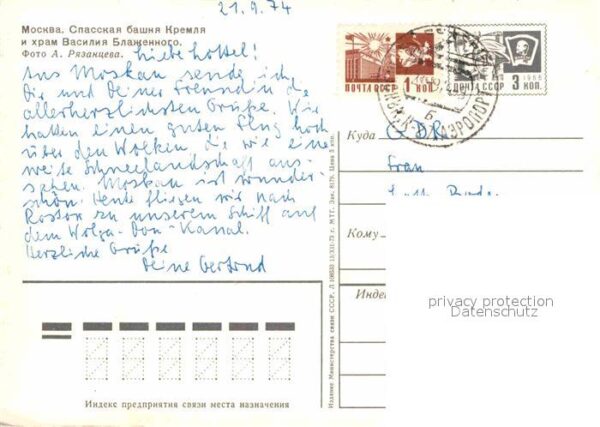 21.9.74
Москва. Спасская башня Кремля
и храм Василия Блаженного.
Фото А. Рязанцева.
Liebe Lottel!
Aus Moskau sende ich
Dir und Deiner Freundin die
allerherzlichsten Grüße. Wir
hatten einen guten Flug hoch
über den Wolken die wie eine
weite Schneelandschaft aus-
sahen. Moskau ist wunder-
schön. Heute fliegen wir nach
Rostov zu unserem Schiff auf
dem Wolga-Don-Kanal.
Herzliche Grüße
Deine Gertrud
ПОЧТА СССР 1 КОП.
ПОЧТА СССР 3 КОП.
1966
АЭРОПОРТ
Б
Куда DDR
Frau
Кому
Инде
privacy protection
Datenschutz
Издание Министерства связи СССР.
Индекс предприятия связи места назначения